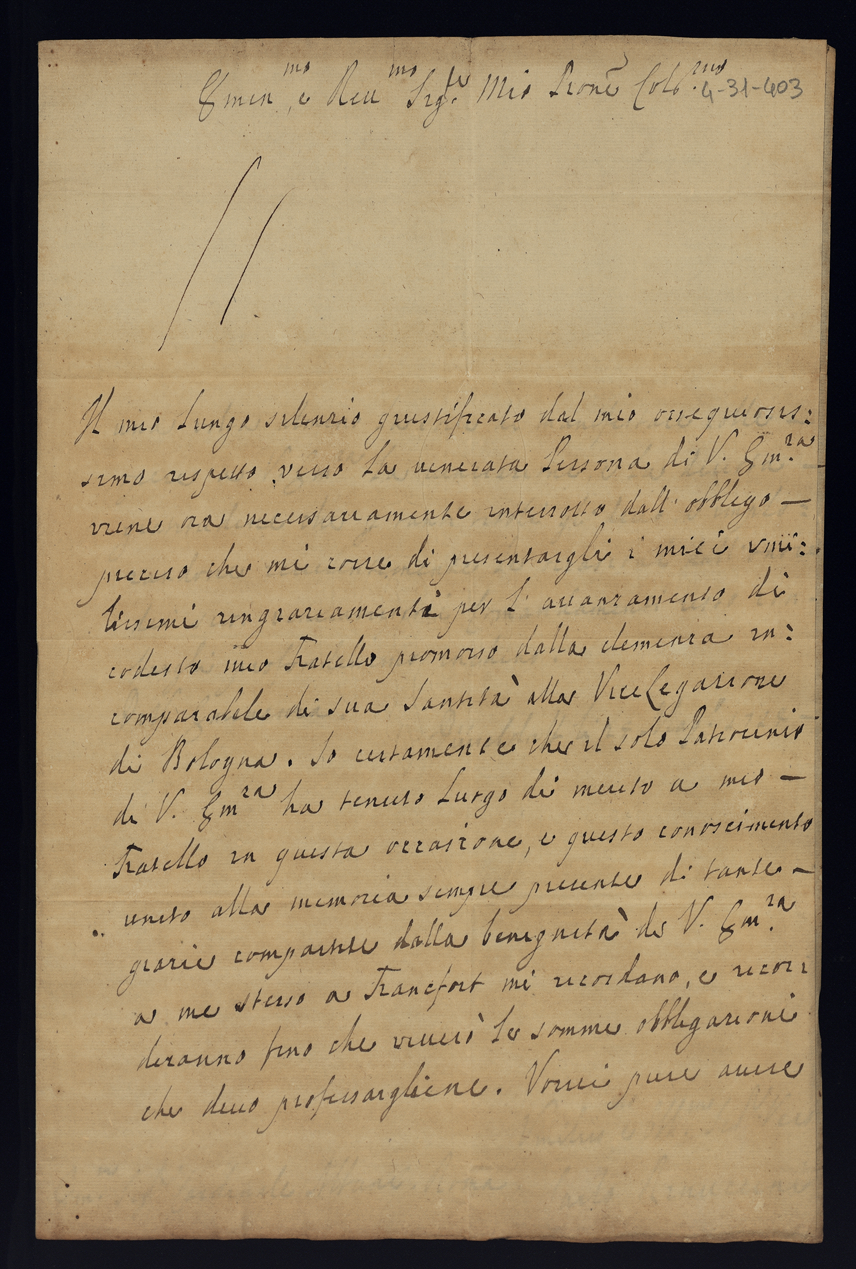 Emin.mo e Reu.mo Sig.re Mio Pron̄e Col.mo
4-31-403
Il mio lungo silenzio giustificato dal mio ossequiosis:
simo rispetto verso la venerata Persona di V. Em.za
viene ora necessariamente interrotto dall' obbligo —
preciso che mi corre di presentargli i miei vmi:
lissimi ringraziamenti per l' auanzamento di
codesto mio Fratello promosso dalla clemenza in:
comparabile di sua Santità alla ViceLegazione
di Bologna. So certamente che il solo Patrocinio
di V. Em.za ha tenuto luogo di merito a mio —
Fratello in questa occasione, e questo conoscimento
unito alla memoria sempre presente di tante —
grazie compartite dalla benignità di V. Em.za
a me stesso a Francfort mi ricordano, e ricor:
deranno fino che viuerò le somme obbligazioni
che deuo professargliene. Vorrei pure auere